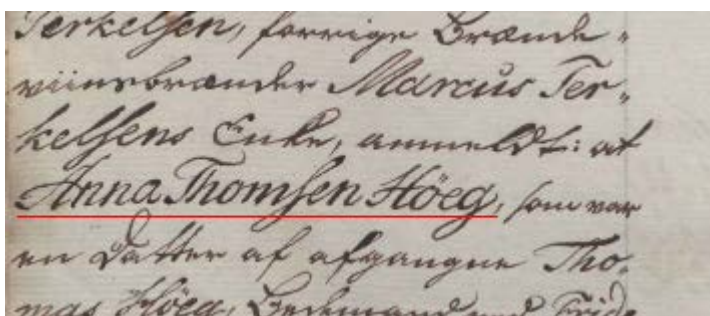 Terkelsen, forrige Brænde-
viinsbrænder Marcus Ter-
kelsens Enke, anmeldt: at
Anna Thomsen Höeg, som var
en Datter af afgangne Tho-
mas Höeg, Bedemand ved Fride